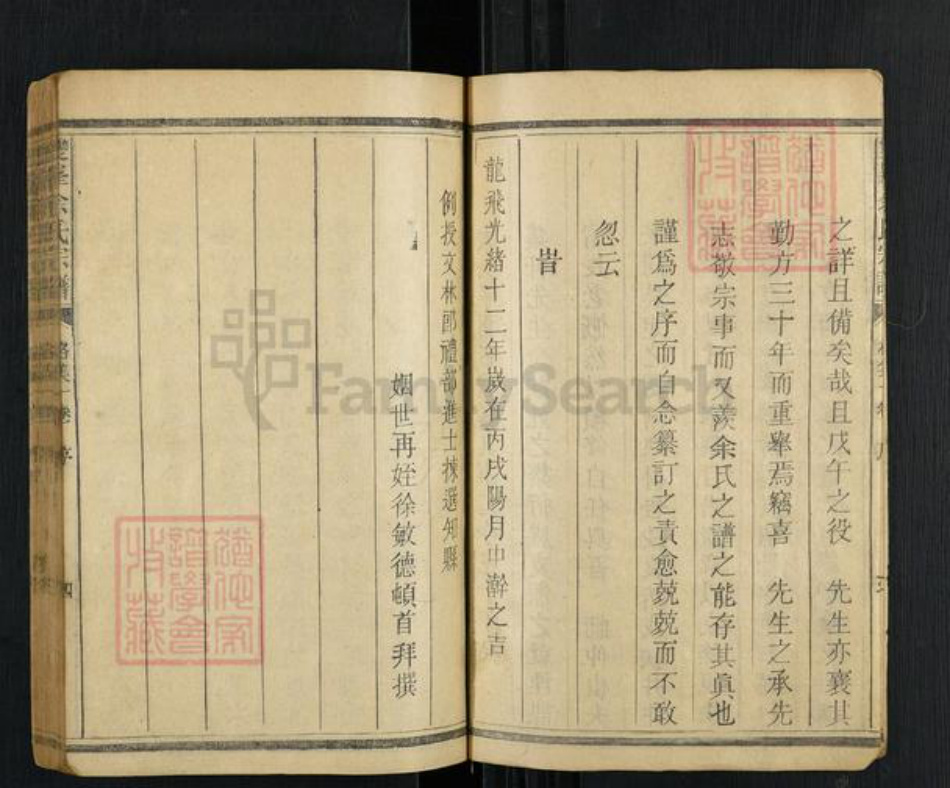 之詳且備矣哉且戊午之役　先生亦襄其
勤方三十年而重舉焉竊喜　先生之承先
志敬宗事而又羨余氏之譜之能存其眞也
謹爲之序而自念纂訂之責愈兢兢而不敢
忽云
旹
龍飛光緒十二年嵗在丙戌陽月中澣之吉
例授文林郎禮部進士揀選知縣
姻世再姪徐敏德頓首拜撰
余氏宗譜
卷
序
四
FamilySearch
譜學會
收藏